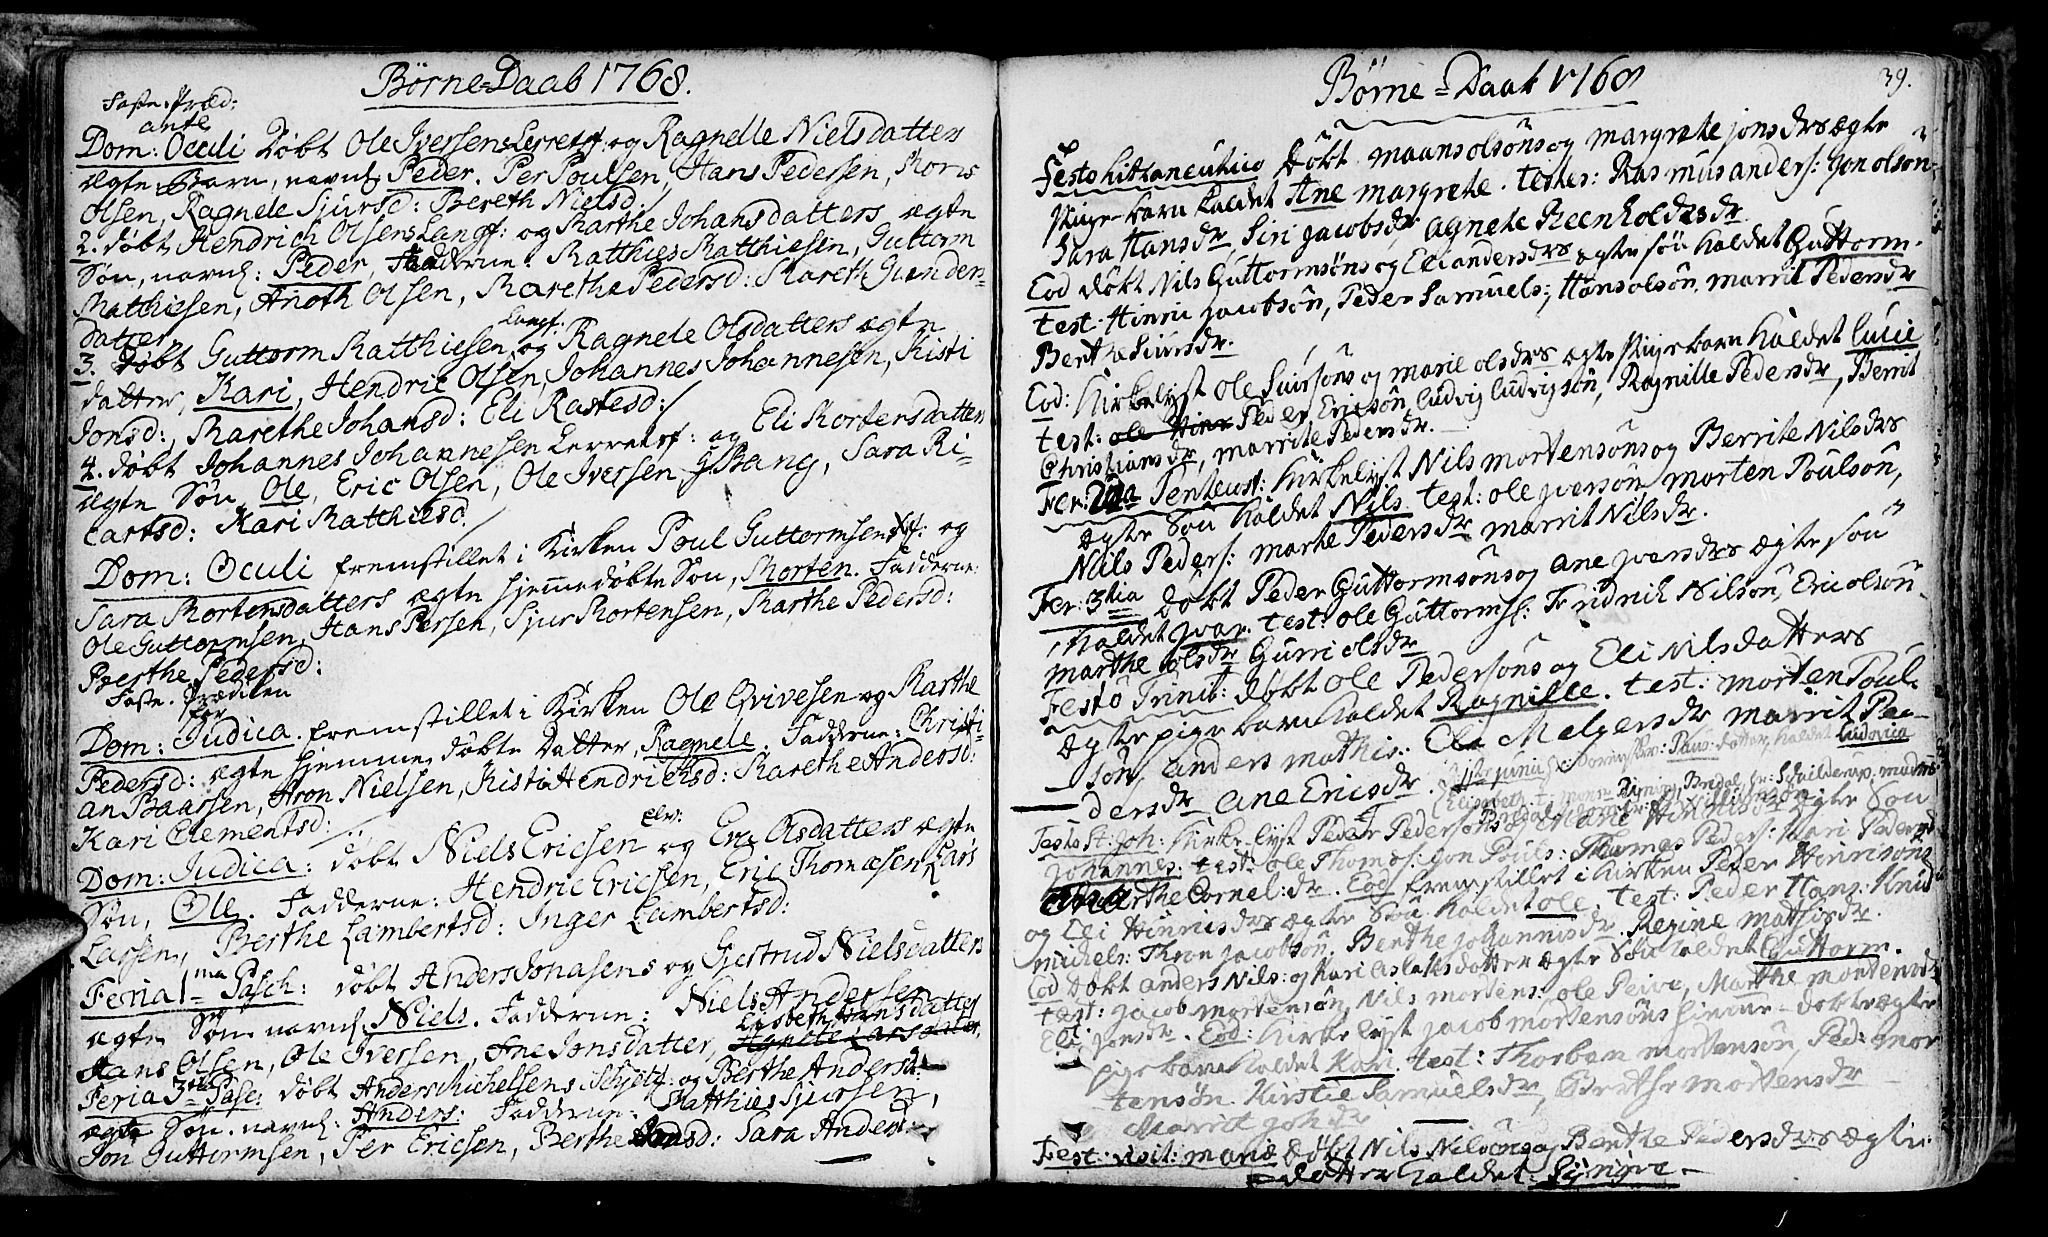 Börne-Daab 1768.
Faste-Præd:
ante
Dom: Oculi Döbt Ole Iversens Lerretsf: og Ragnelle Nielsdatters
ægte Barn, navnl Peder. Per Poulsen, Hans Pedersen, Mons
Olsen, Ragnele Sjursd: Bereth Nielsd:
2. döbt Hendrich Olsens Langf: og Marthe Johansdatters ægte
Søn, navnl: Peder, Fadderne: Matthies Matthiesen, Guttorm
Matthiesen, Anoth Olsen, Marethe Pedersd: Mareth Gunder-
datter
3. Döbt Guttorm Matthiesen Langf: og Ragnele Olsdatters ægte
datter, Kari, Hendric Olsen, Johannes Johannesen, Kisti
Jonsd:, Marethe Johansd: Eli Rastesd:/
4. döbt Johannes Johannesen Lerretsf: og Eli Mortensdatters
ægte Søn, Ole, Eric Olsen, Ole Iversen, J: Bang, Sara Ri-
cartsd: Kari Matthiesd.
Dom: Oculi fremstillet i Kirken Poul Guttormsens og
Sara Mortensdatters ægte hjemmedöbte Søn, Morten. Fadderne:
Ole Guttormsen, Hans Persen, Sjur Mortensen, Marthe Pedersd:
Berthe Pedersd:
Faste-Prædiken
for
Dom: Judica. fremstillet i Kirken Ole Qvivesen og Marthe
Pedersd: ægte hjemme döbte Datter, Ragnele. Fadderne: Christi-
an Baarsen, Aron Nielsen, Kisti Hendricksd: Marethe Andersd:
Kari Clementsd:
Dom: Judica: döbt Niels Ericsen elv: og Eve Olsdatters ægte
Søn, Ole. Fadderne: Hendric Ericsen, Eric Thomasen, Lars
Larsen, Berthe Lambertsd: Inger Lambertsd:
Feria 1ma Pasch: döbt Anders Jonasens og Gjertrud Nielsdatters
ægte Søn navnl Niels. Fadderne: Niels Andersen
Hans Olsen, Ole Iversen, Ane Jonsdatter, Elisbeth Hansdatter
Feria 3tia Pasc: döbt Anders Michelsens Schjötz: og Berthe Andersd:
ægte Søn. navnl: Anders: Fadderne: Matthies Sjursen,
Jon Guttormsen, Per Ericsen, Berthe Sara Andersd:
Börne-Daab 1768 39.
Festo Döbt maans olsöns og margrete jonsdrs ægte
Pige-barn kaldet Ane margrete. testes: Rasmus anders: Jon olsön
Sara Hansdr Siri jacobsdr agnete Reenholdsdr
Eod döbt Nils Guttormsöns og Eli andersdrs ægte sön kaldet Guttorm.
test: Hinric jacobsön, Peder Samuels: Hans olsön, marrit Pedersdr
Berthe Siursdr.
Eod: Kirkelyst ole Siursöns og marie olsdrs ægte Pige barn kaldet Lucie
test: Peder Ericsön, Ludvig Ludvigsön, Ragnille Pedersdr, Berrit
Christiansdr, marrite Pedersdr.
Fer: 2da Pentecost: Kirkelyst Nils mortensöns og Berrite Nilsdrs
ægte Sön kaldet Nils test: ole jversön morten Poulsön,
Nils Peders: marte Pedersdr marrit Nilsdr.
Fer: 3tia döbt Peder Guttormsöns og ane jversdrs ægte sön
kaldet jvar. test: ole Guttorms: Fridrich Nilsön, Eric olsön
marthe olsdr Gurri olsdr
Festo Trinit: döbt ole Pedersöns og Eli Nilsdatters
ægte pige barn kaldet Ragnille. test: morten Poul-
sön, anders mathis: Eli Melgersdr marrit Pe-
dersdr ane Ericsdr.
datter kaldet Ludovica
Elisabeth
Festo St: Joh: Kirke-lyst Peder Pedersöns og Marie Hinricsdrs ægte Sön
Johannes. test: ole Thomes: jon Pouls: Thomes Peders: Kari Pedersd
Marthe Cornel:dr. Eod fremstillet i Kirken Peder Hinrisöns
og Eli Hinrisdrs ægte Sön kaldet ole. test: Peder Hans: Knud
michels: Thron jacobsön, Berthe johannisdr. Regine mathisdr.
Eod Döbt anders Nils: og Kari aslaksdotter ægte Sön kaldet Guttorm.
test: jacob mortensön, Nils mortens: ole Peive, Marthe mortensdr
Eli jonsdr. Eod: Kirke lyst jacob mortensöns himme-döbte ægte
pige barn kaldet Kari. test: Thorben mortensön, Ped: mor
tensön. Kirstie Samuelsdr, Berthe mortensdr
Marrit joh:dr
Fest: visit: mariæ Döbt Nils Nilsöns og Berthe Pedersdrs ægte
dotter kaldet: Synnive.